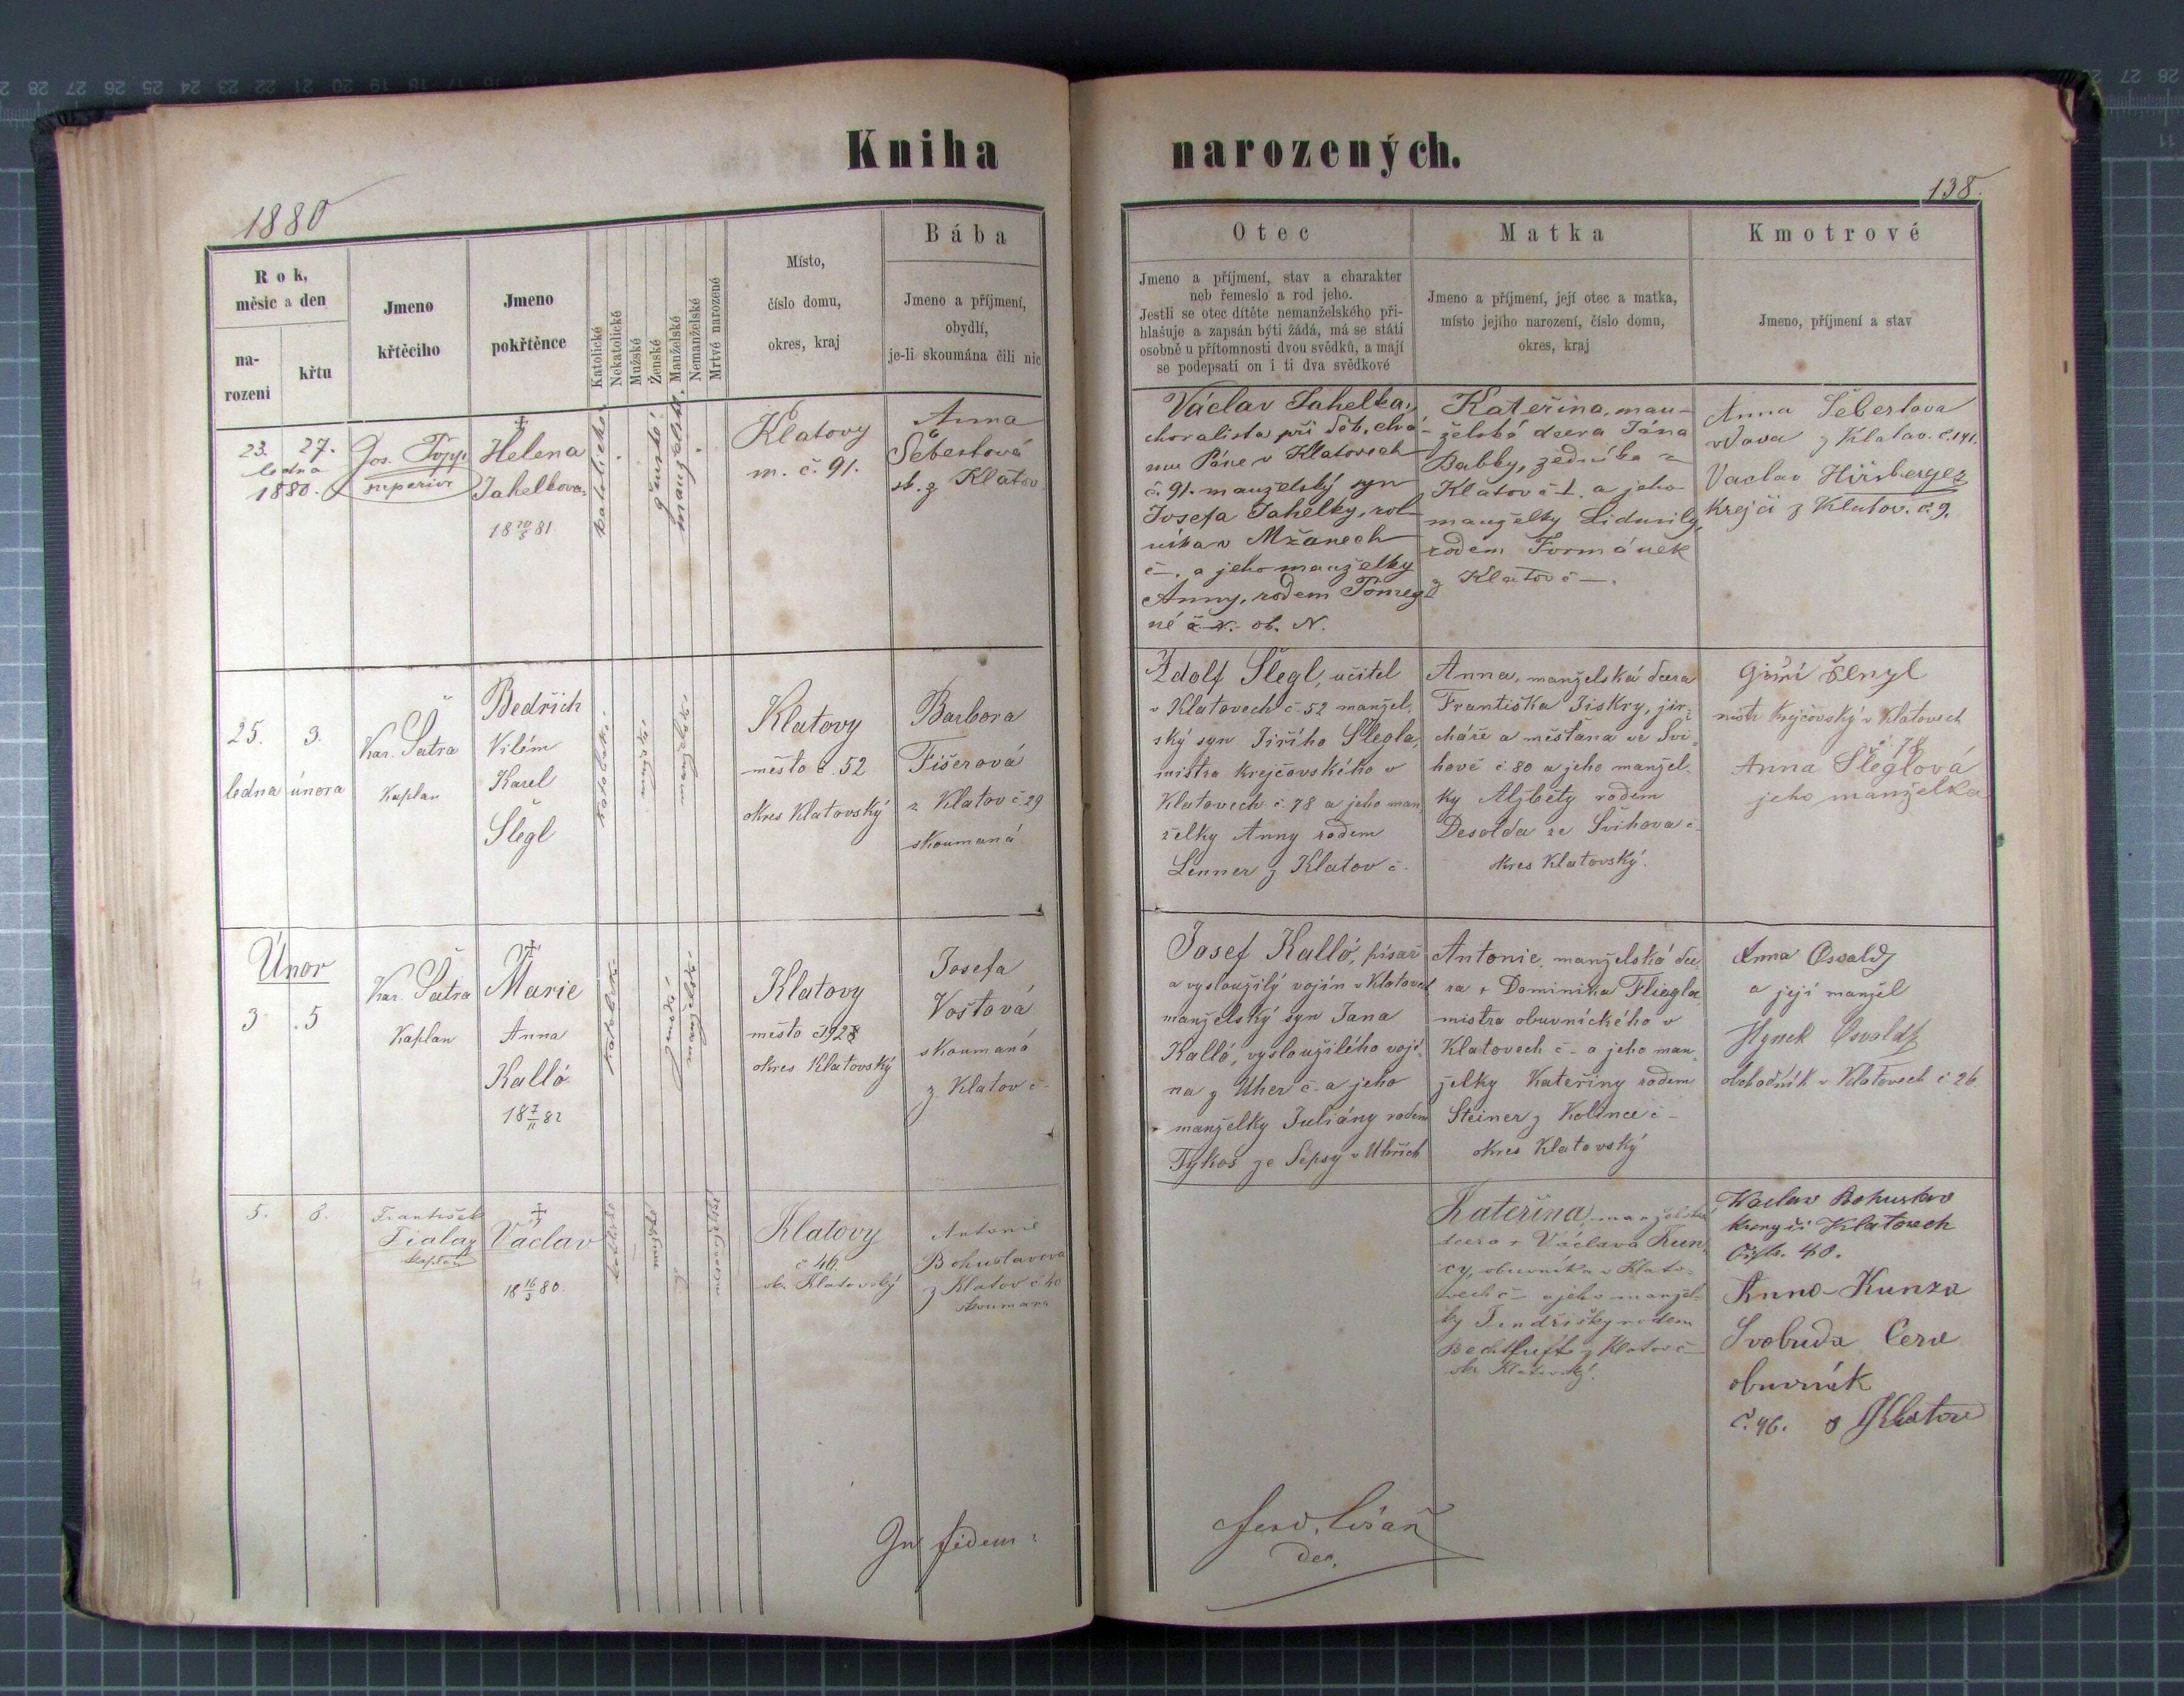 Kniha narozených.
1880
138.
Rok,
měsíc a den
na-
rození
křtu
Jmeno
křtěcího
Jmeno
pokřtěnce
Katolické
Nekatolické
Mužské
Ženské
Manželské
Nemanželské
Mrtvé narozené
Místo,
číslo domu,
okres, kraj
Bába
Jmeno a příjmení,
obydlí,
je-li skoumána čili nic
Otec
Jmeno a příjmení, stav a charakter
neb řemeslo a rod jeho.
Jestli se otec dítěte nemanželského při-
hlašuje a zapsán býti žádá, má se státi
osobně u přítomnosti dvou svědků, a mají
se podepsati on i ti dva svědkové
Matka
Jmeno a příjmení, její otec a matka,
místo jejího narození, číslo domu,
okres, kraj
Kmotrové
Jmeno, příjmení a stav
23. 27.
ledna
1880.
Jos. Töppl
superior
Helena
Jahelkova
18 20/5 81
katolické
ženské
manželské
Klatovy
m. č. 91.
Anna
Šebestová
zk. z Klatov
Václav Jahelka,
choralista při
mu Páně v Klatovech
č. 91. manželský syn
Josefa Jahelky, rol-
níka v Mžanech
č–. a jeho manželky
Anny, rodem
ob. N.
Kateřina, man-
želská dcera Jána
Babky, zedníka z
Klatov č 1. a jeho
manželky Lidmily,
rodem Formánek
z Klatov č –.
Anna Šebestova
vdova z Klatov. č. 141.
Vaclav
Krejčí z Klatov. č. 9.
25. 3.
ledna února
Kar. Šatra
Kaplan
Bedřich
Vilém
Karel
Šlegl
katolické
mužské
manželské
Klatovy
město č. 52
okres Klatovský
Barbora
Fišerová
z Klatov č 29
skoumaná
Adolf Šlegl, učitel
v Klatovech č. 52 manžel-
ský syn Jiřího Šlegla,
mistra krejčovského v
Klatovech č. 78 a jeho man-
želky Anny rodem
Lenner z Klatov č.
Anna, manželská dcera
Františka Jiskry, jir-
cháře a měšťana ve Švi-
hově č. 80 a jeho manžel-
ky Alžběty rodem
Desolda ze Švihova č.
okres Klatovský.
mistr krejčovský v Klatovech
č. 78
Anna Šleglová
jeho manželka
Únor
3 5
Kar. Šatra
Kaplan
Marie
Anna
Kalló
18 7/11 82
katolické
ženské
manželské
Klatovy
město č
okres Klatovský
Josefa
Voštová
skoumaná
z Klatov č –
Josef Kalló, písař
a vysloužilý vojín v Klatovech
manželský syn Jana
Kalló, vysloužilého vojí-
na z Uher č – a jeho
manželky Juliány rodem
Tykos ze Sepsy v Uhřích
Antonie, manželská dce-
ra + Dominika Fliegla
mistra obuvnického v
Klatovech č – a jeho man-
želky Kateřiny rodem
Steiner z Kolince č –
okres Klatovský
Anna Osvald
a její manžel
Hynek Osvald
obchodník v Klatovech č. 26.
5. 8.
František
Fiala
kaplan
Václav
18 16/3 80.
katolické
mužské
nemanželské
Klatovy
č 46.
okr. Klatovský
Antonie
Bohuslavova
z Klatov č 40
skoumaná
Kateřina, manželská
dcera + Václava Kun-
cy, obuvníka v Klato-
vech č – a jeho manžel-
ky Jindřišky rodem
z Klatov č –
okr. Klatovský.
Waclav Bohuslav
Klatovech
Číslo. 40.
Anna Kunza
Svobuda Cera
obuvník
č. 46. v Klatov
In fidem:
Ferd. Lišař